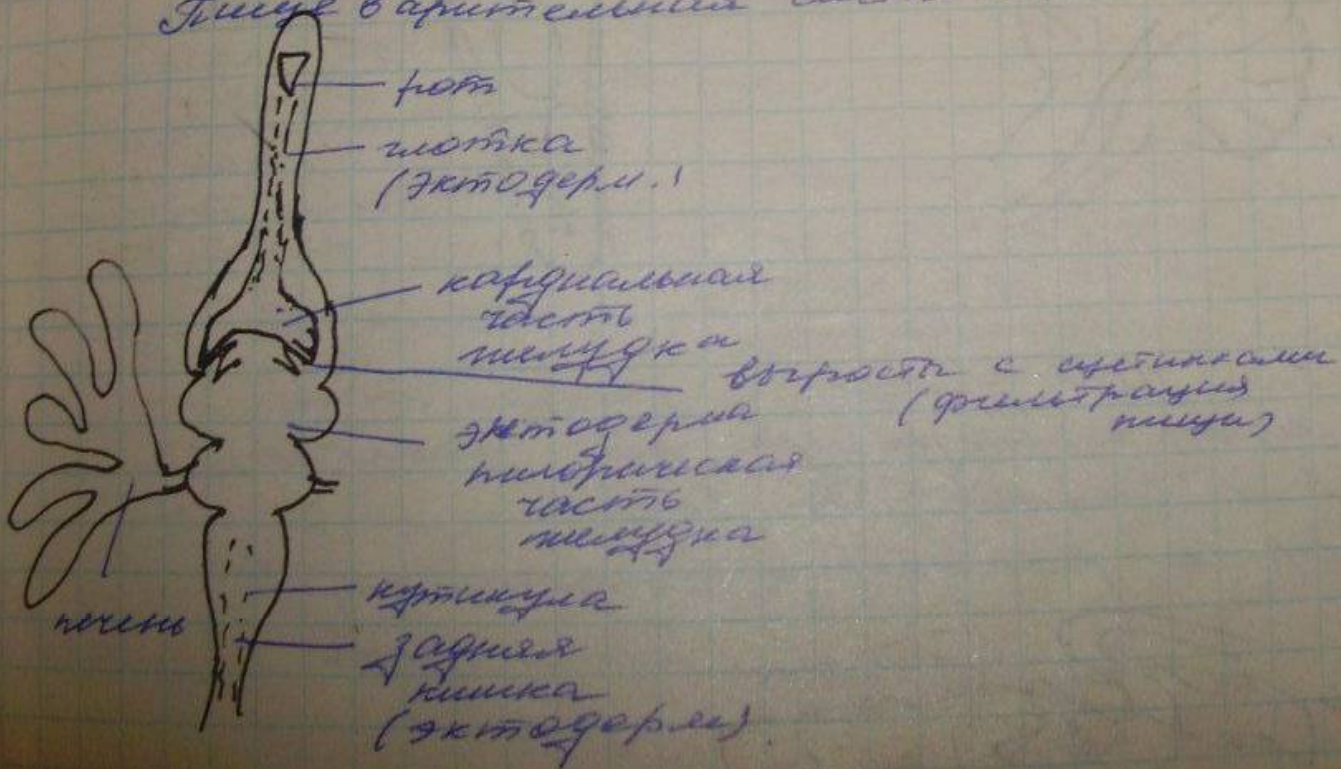 Пищеварительная
рот
глотка
(эктодерм.)
кардиальная
часть
желудка
выросты с щетинками
(фильтрация
пищи)
эктодерма
пилорическая
часть
желудка
кутикула
печень
задняя
кишка
(эктодерм)